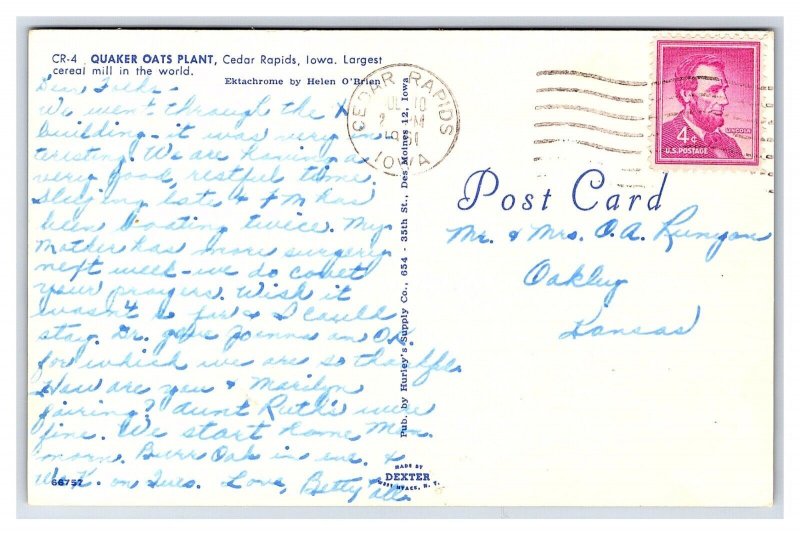 CR-4 QUAKER OATS PLANT, Cedar Rapids, Iowa. Largest
cereal mill in the world.
Ektachrome by Helen O'Brien
Dear Folks -
We went through the X
building - it was very in-
teresting. We are having a
very good, restful time.
Sleeping late & JM has
been boating twice. My
Mother has more surgery
next week - we do covet
your prayers. Wish it
wasn't so far & I could
stay. Dr. gave Joanna an O.K.
for which we are so thankful.
How are you & Marilyn
fairing? Aunt Ruth's were
fine. We start home Mon.
morn. Burr Oak in eve. &
on Tues. Love, Betty & all.
66757
Pub. by Hurley's Supply Co., 654 - 35th St., Des Moines 12, Iowa
MADE BY
DEXTER
WEST NYACK, N. Y.
CEDAR RAPIDS
IOWA
4¢
LINCOLN
U.S. POSTAGE
Post Card
Mr. & Mrs. O.A. Runyan
Oakley
Kansas